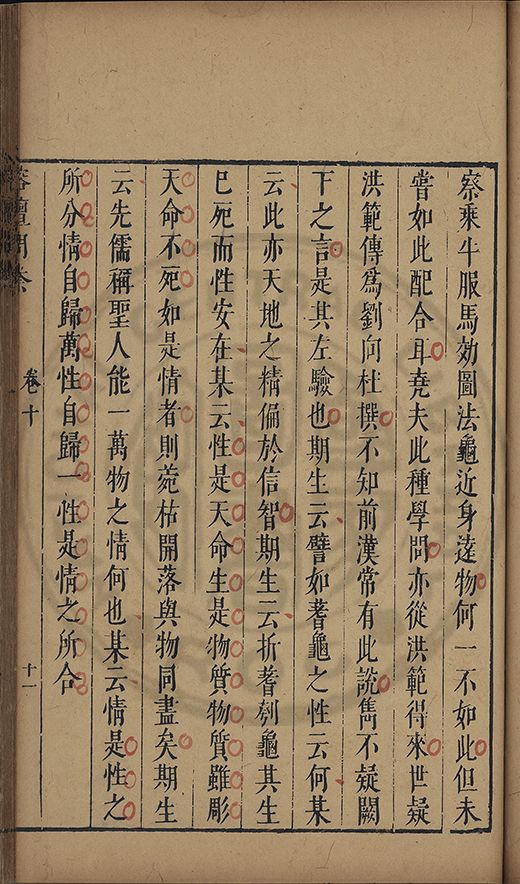 察乘牛服馬効圖法龜近身遠物何一不如此但未
嘗如此配合耳堯夫此種學問亦從洪範得來世疑
洪範傳為劉向杜撰不知前漢常有此說雋不疑闕
下之言是其左驗也期生云譬如蓍龜之性云何某
云此亦天地之精偏於信智期生云折蓍刳龜其生
已死而性安在某云性是天命生是物質物質雖彫
天命不死如是情者則菀枯開落與物同盡矣期生
云先儒稱聖人能一萬物之情何也某云情是性之
所分情自歸萬性自歸一性是情之所合
榕壇問業
卷十
十一